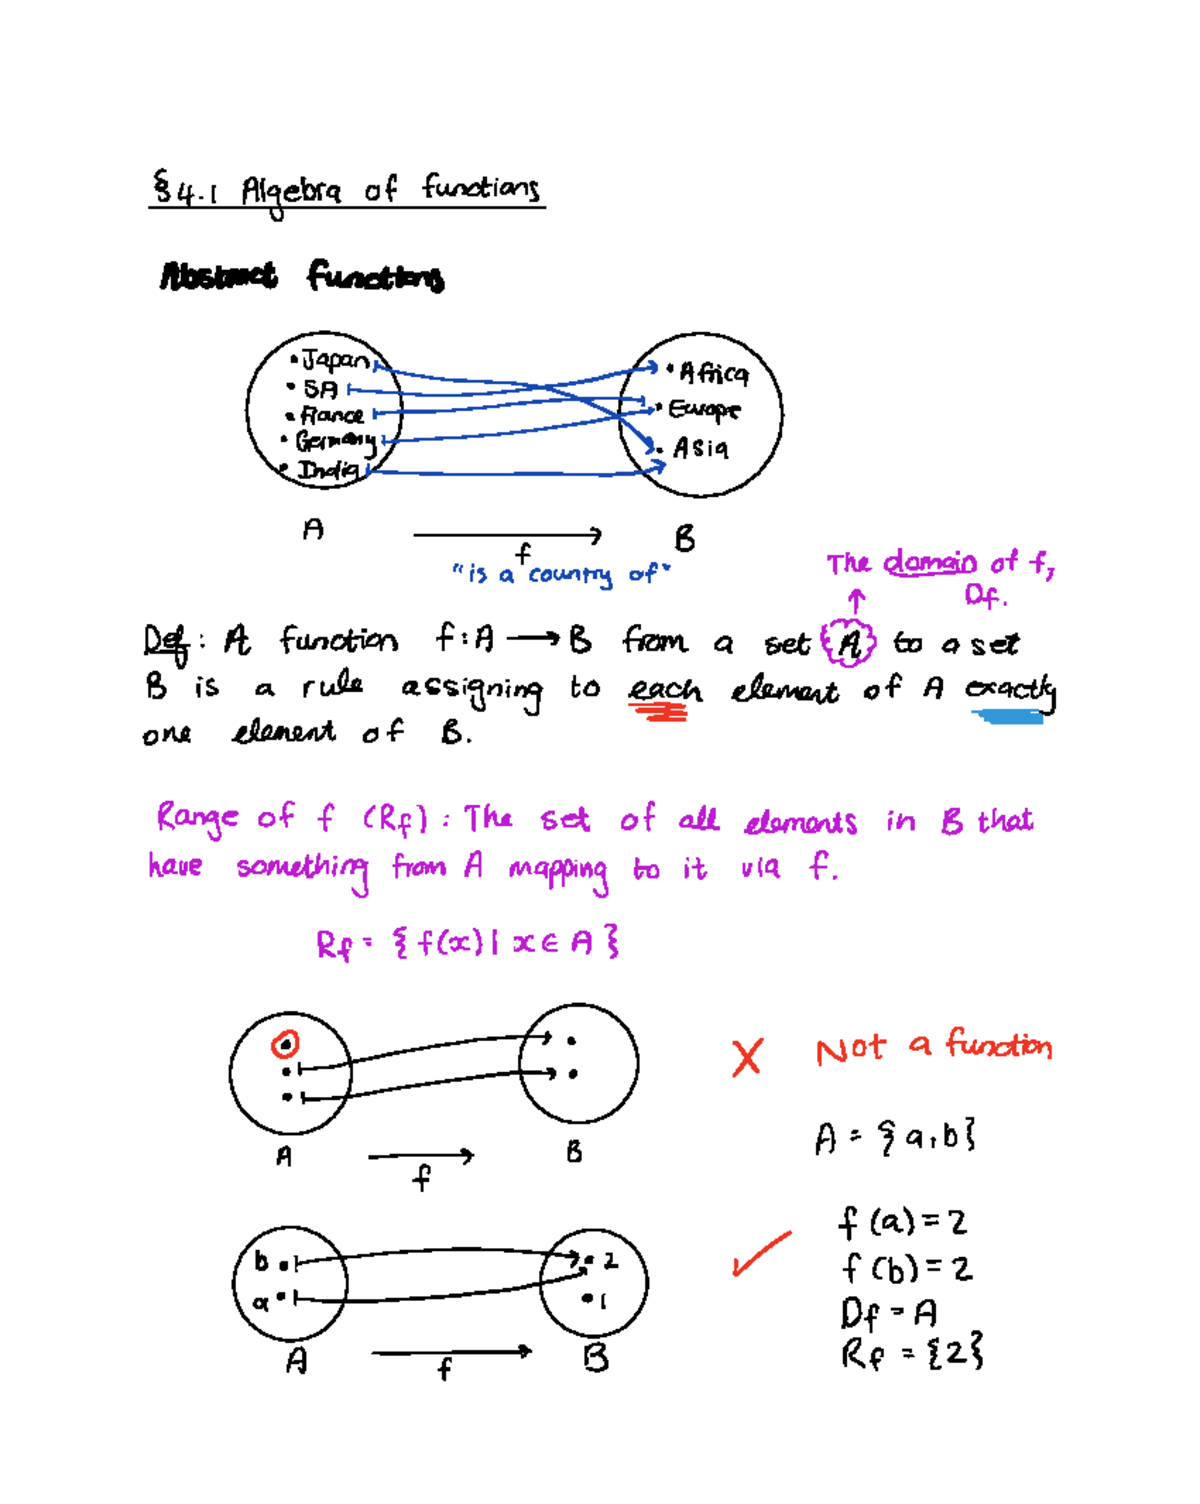 §4.1 Algebra of functions
Abstract functions
• Japan
• SA
• France
• Germany
• India
• Africa
• Europe
• Asia
A
f
B
"is a country of"
The domain of f,
Df.
Def: A function f: A → B from a set A to a set
B is a rule assigning to each element of A exactly
one element of B.
Range of f (Rf): The set of all elements in B that
have something from A mapping to it via f.
Rf = { f(x) | x ∈ A }
X Not a function
A
f
B
A = {a, b}
b
a
2
1
A
f
B
✓
f(a) = 2
f(b) = 2
Df = A
Rf = {2}